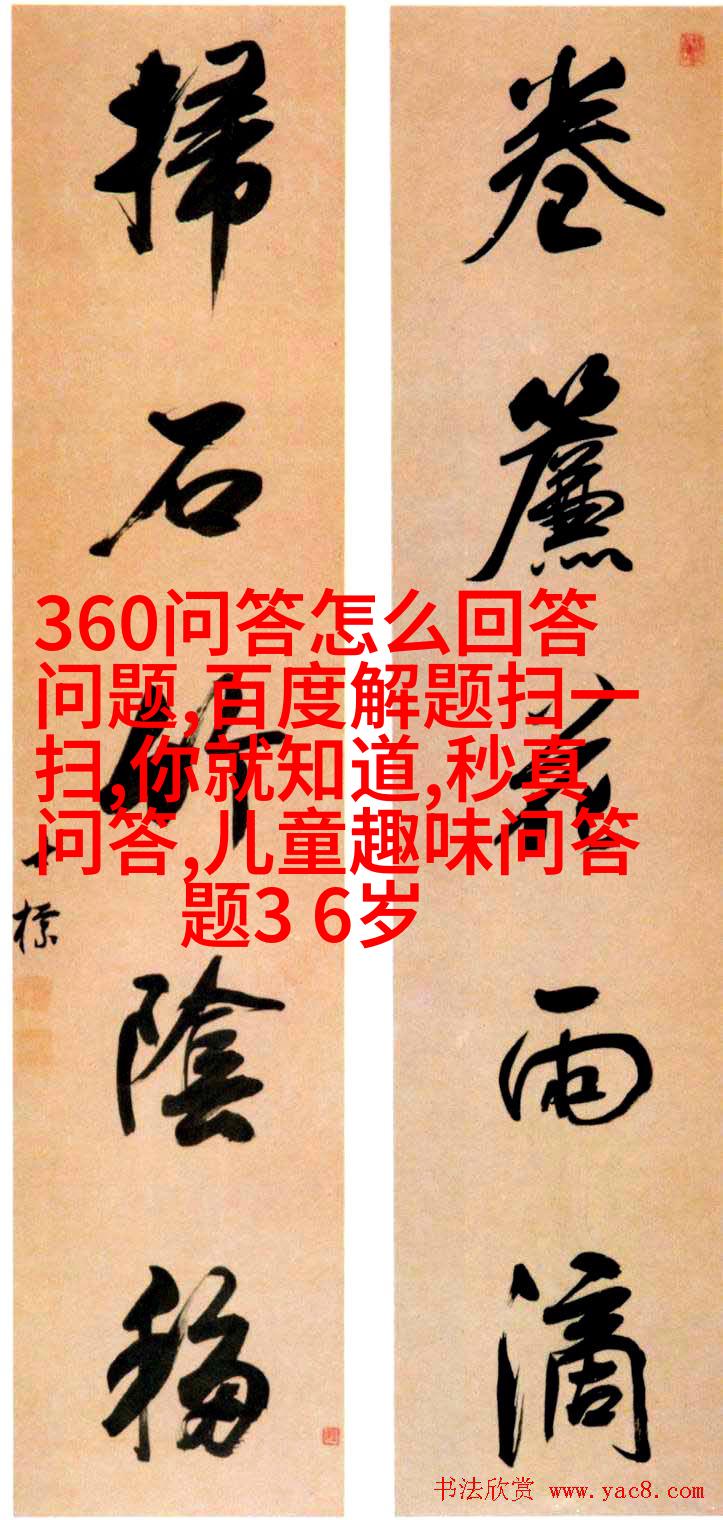 卷簾花雨滴
掃石竹陰移
士標
360问答怎么回答
问题,百度解题扫一
扫,你就知道,秒真
问答,儿童趣味问答
题3 6岁
书法欣赏 www.yac8.com